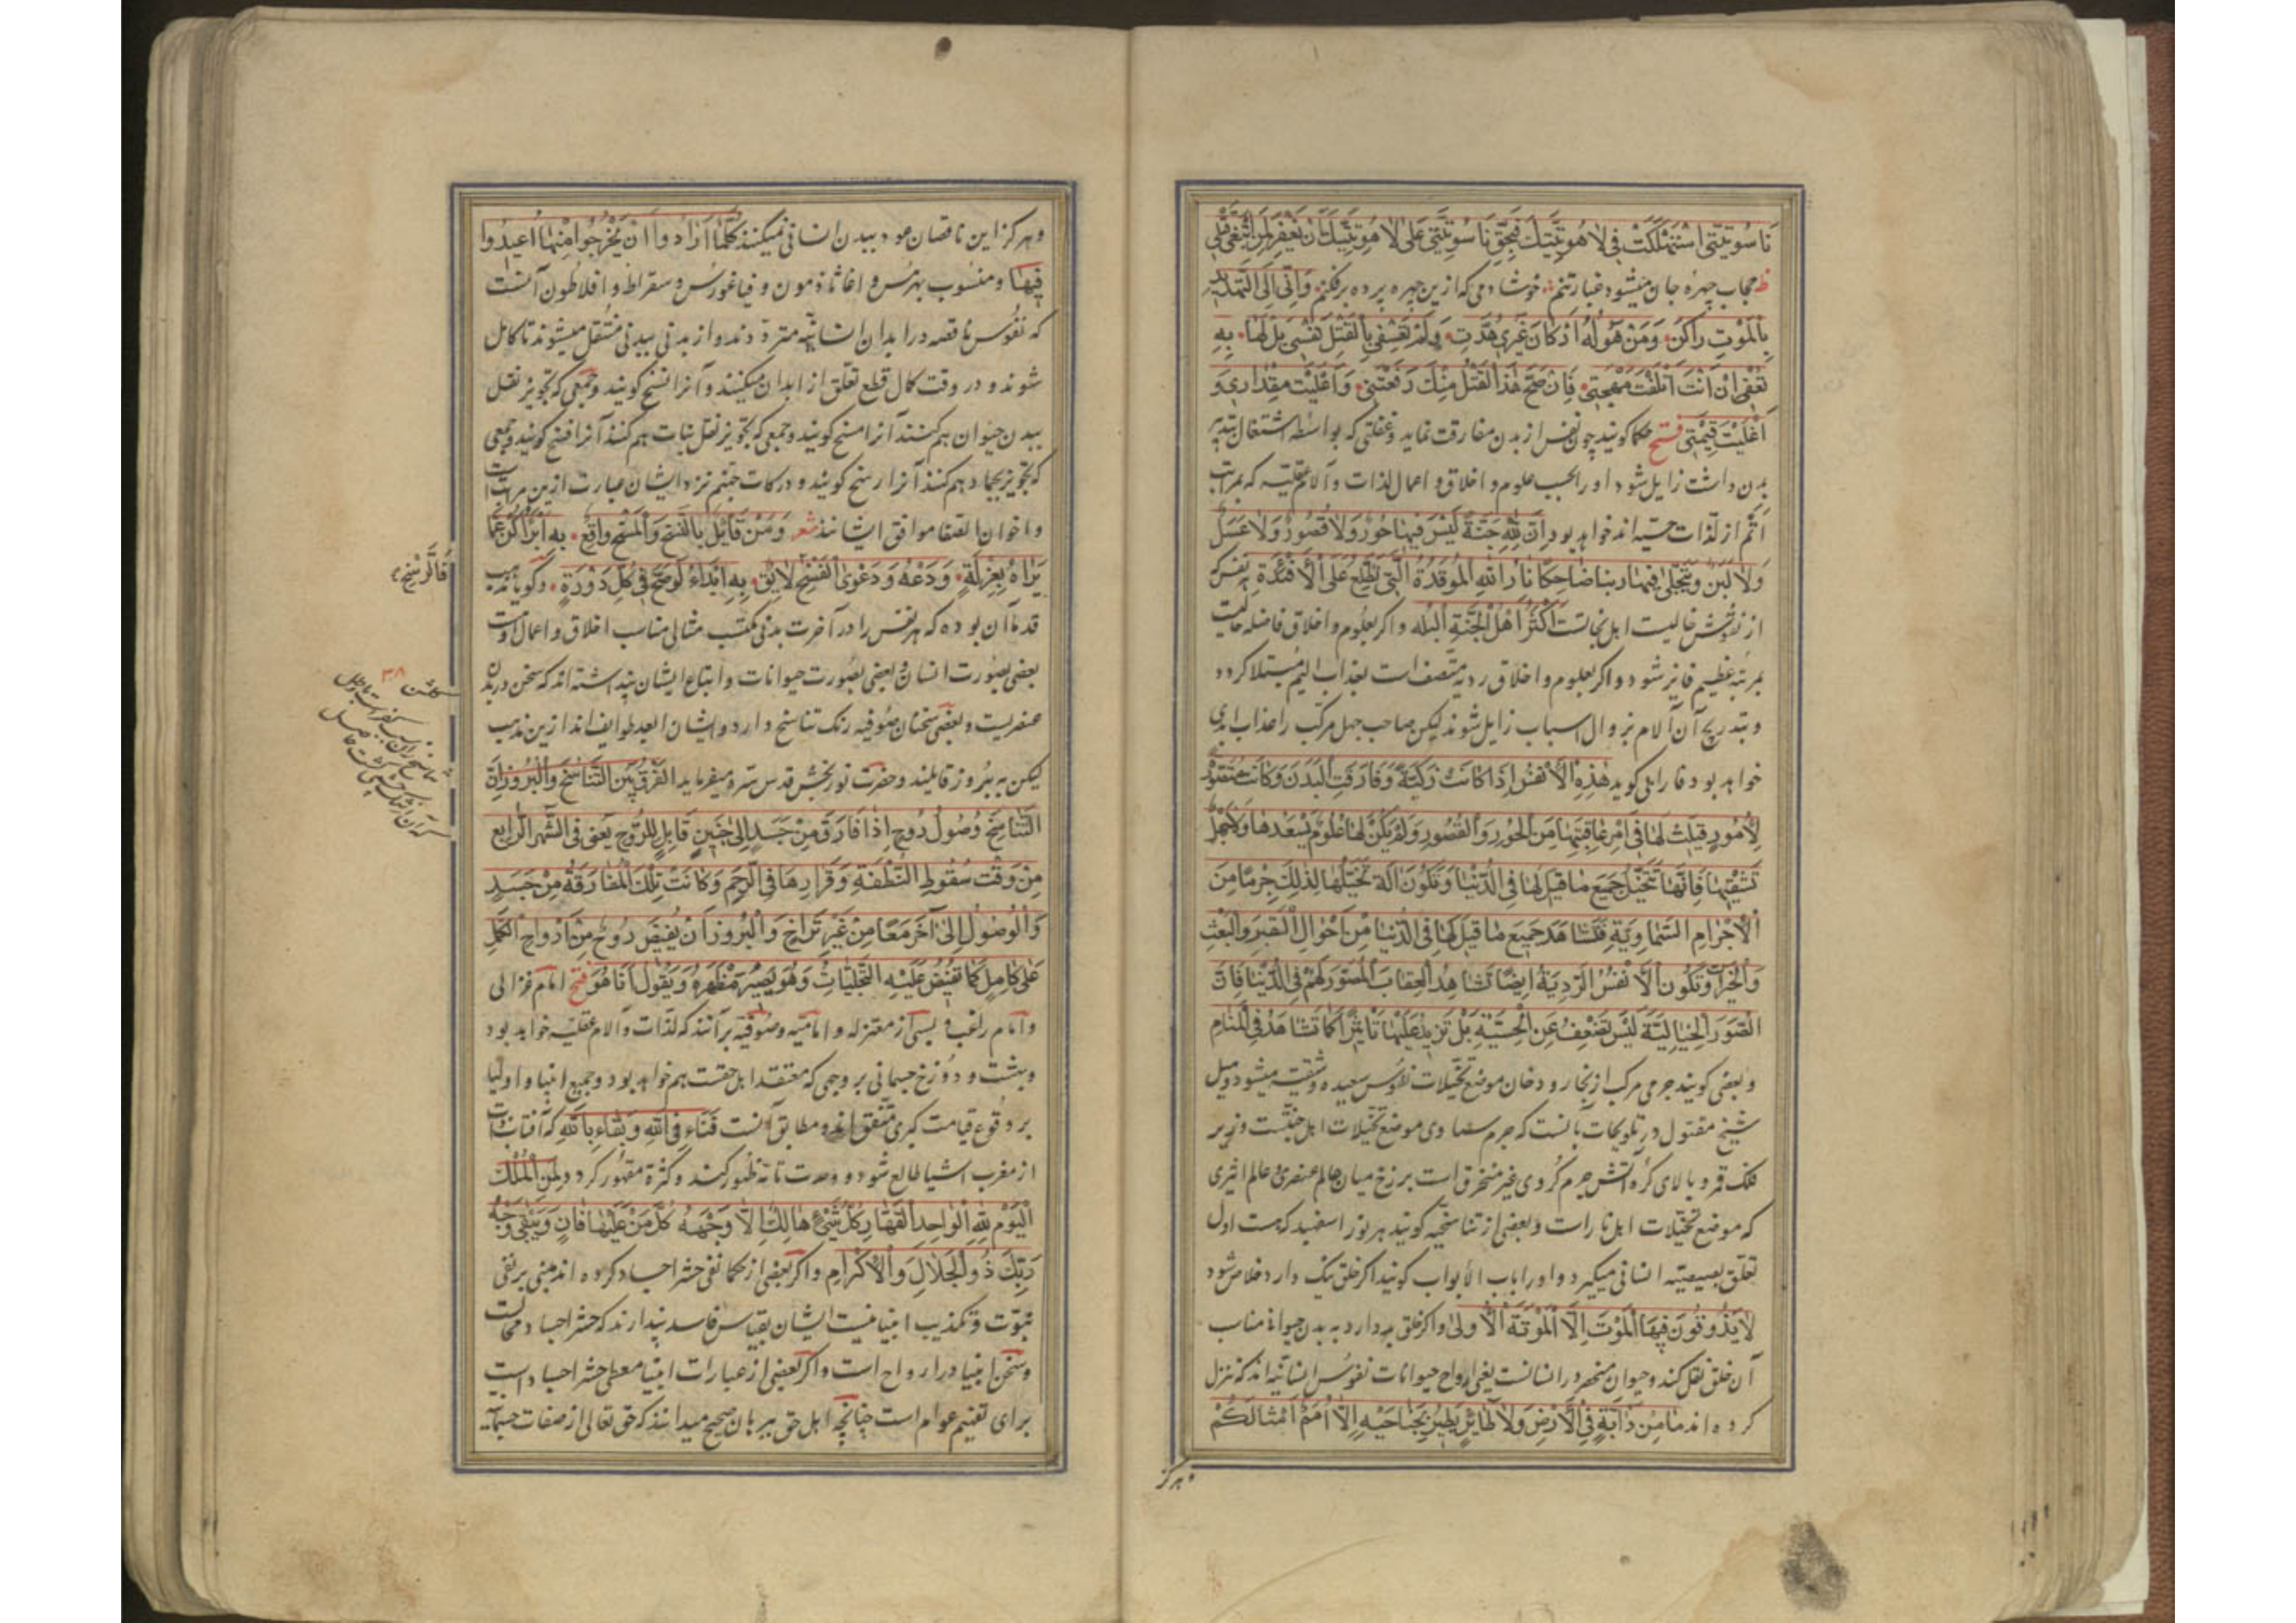 ناسوتیّتی استهلکت فی لاهوتیّتك فبحقّ ناسوتیّتی علی لاهوتیّتك ان تغفر لمن سعی فی قتلی
حجاب چهرهٔ جان میشود غبار تنم خوشا دمی که ازین چهره پرده برفکنم وانّی الی التهدید
بالموت راکن ومن هوله ارکان غیری هدّت ولم تعسفی بالقتل نفسی بل لها به
تعفی ان انت اتلفت مهجتی فان صحّ هذا القتل منك رفعتنی واعلیت مقداری و
اغلیت قیمتی فتح حکما کویند چون نفس از بدن مفارقت نماید و غفلتی که بواسطه اشتغال بتدبیر
بدن داشت زایل شود اورا بحسب علوم و اخلاق و اعمال لذات و آلام عقلیّه که بمراتب
اتمّ از لذّات حسیّه اند خواهد بود ان للّه جنّة لیس فیها حور ولا قصور ولا عسل
ولا لبن ویتجلّی فیها ربنا ضاحکا نار الله الموقدة الّتی تطّلع علی الافئدة نفس که
از نقوش خالیست اهل نجاتست اکثر اهل الجنّة البله واکر بعلوم و اخلاق فاضله حالیست
بمرتبهٔ عظیم فایز شود واکر بعلوم و اخلاق ردیه متّصف است بعذاب الیم مبتلا کردد
و بتدریج آن آلام بزوال اسباب زایل شوند لیکن صاحب جهل مرکّب را عذاب ابدی
خواهد بود فارابی کوید هذه الانفس اذا کانت زکیّة وفارقت البدن وکانت معتقدة
لامور قیلت لها فی امر عاقبتها من الحور والقصور ولم یکن لها علوم یسعدها ولا جهل
تشقیها فانّها تتخیّل جمیع ما قیل لها فی الدّنیا وتکون آلة تخیّلها لذلك جرما من
الاجرام السّماویّة فتشاهد جمیع ما قیل لها فی الدّنیا من احوال القبر والبعث
والخیرات وتکون الانفس الرّدیّة ایضا تشاهد العقاب المصوّر لهم فی الدّنیا فانّ
الصّور الخیالیّة لیس تضعف عن الحسّیّة بل تزید علیها تاثیرا کما تشاهد فی المنام
و بعضی کویند جرمی مرکّب از بخار و دخان موضع تخیّلات نفوس سعیده و شقیّه میشود و میل
شیخ مقتول در تلویحات بآنست که جرم سماوی موضع تخیّلات اهل جنّتست و زیر
فلك قمر و بالای کرهٔ آتش جرم کروی غیر منخرق است برزخ میان عالم عنصری و عالم اثیری
که موضع تخیّلات اهل نار است و بعضی از تناسخیّه کویند هر نور اسفهبد که هست اول
تعلّق بصیصیّه انسانی میکیرد و اورا باب الابواب کویند اکر خلق نیك دارد خلاص شود
لا یذوقون فیها الموت الّا الموتة الاولی واکر خلق بد دارد به بدن حیوانی مناسب
آن خلق نقل کند و حیوان منحصر در انسانست یعنی ارواح حیوانات نفوس انسانیّه اند که تنزل
کرده اند ما من دابّة فی الارض ولا طائر یطیر بجناحیه الّا امم امثالکم
و هرکز
و هرکز این ناقصان عود ببدن انسانی نمیکنند کلّما ارادوا ان یخرجوا منها اعیدوا
فیها و منسوب بهرمس و اغاثاذیمون و فیثاغورس و سقراط و افلاطون آنست
که نفوس ناقصه در ابدان انسانیّه متردّدند و از بدنی ببدنی منتقل میشوند تا کامل
شوند و در وقت کمال قطع تعلّق از ابدان میکنند و آنرا نسخ کویند و جمعی که تجویز نقل
ببدن حیوان هم کنند آنرا مسخ کویند و جمعی که تجویز نقل بنبات هم کنند آنرا فسخ کویند و جمعی
که تجویز بجماد هم کنند آنرا رسخ کویند و درکات جهنّم نزد ایشان عبارت ازین مراتب است
و اخوان الصّفا موافق ایشانند شعر ومن قائل بالنسخ والمسخ واقع به ابرأ وکن عمّا
یراه بعزلة ودعه ودعوی الفسخ والرسخ لائق به ابدا لو صحّ فی کلّ دورة و کویا مذهب
قدما آن بوده که هر نفس را در آخرت بدنی مکتسب مثالی مناسب اخلاق و اعمال اوست
بعضی بصورت انسان و بعضی بصورت حیوانات و اتباع ایشان پنداشته اند که سخن در بدن
عنصریست و بعضی سخنان صوفیه رنك تناسخ دارد و ایشان ابعد طوایف اند ازین مذهب
لیکن به بروز قایلند و حضرت نوربخش قدس سره میفرماید الفرق بین التناسخ والبروز انّ
التناسخ وصول روح اذا فارق من جسد الی جنین قابل للرّوح یعنی فی الشّهر الرابع
من وقت سقوط النطفة وقرارها فی الرّحم وکانت تلك المفارقة من جسد
والوصول الی آخر معا من غیر تراخ والبروز ان یفیض روح من ارواح الکمّل
علی کامل کما تفیض علیه التجلّیات وهو یصیر مظهره ویقول انا هو فتح امام غزالی
و امام راغب و بسی از معتزله و امامیّه و صوفیّه برآنند که لذّات و آلام عقلیّه خواهد بود
و بهشت و دوزخ جسمانی بر وجهی که معتقد اهل حقست هم خواهد بود و جمیع انبیا و اولیا
بر وقوع قیامت کبری متّفق اند و مطابق آنست فناء فی الله و بقاء بالله که آفتاب ذات
از مغرب اشیا طالع شود و وحدت تامّه ظهور کند و کثرة مقهور کردد لمن الملك
الیوم للّه الواحد القهّار کلّ شیء هالك الّا وجهه کلّ من علیها فان ویبقی وجه
ربّك ذو الجلال والاکرام و اکر بعضی از حکما نفی حشر اجساد کرده اند مبنی بر نفی
نبوّت و تکذیب انبیا نیست ایشان بقیاس فاسد پندارند که حشر اجساد محالست
و سخن انبیا در ارواح است و اکر بعضی از عبارات انبیا معطی حشر اجساد است
برای تفهیم عوام است چنانچه اهل حق ببرهان صحیح میدانند که حق تعالی از صفات جسمانیّه
کلشن ۳۸
تناسخ زان سبب کفرست و باطل
که آن از تنك چشمی کشت حاصل